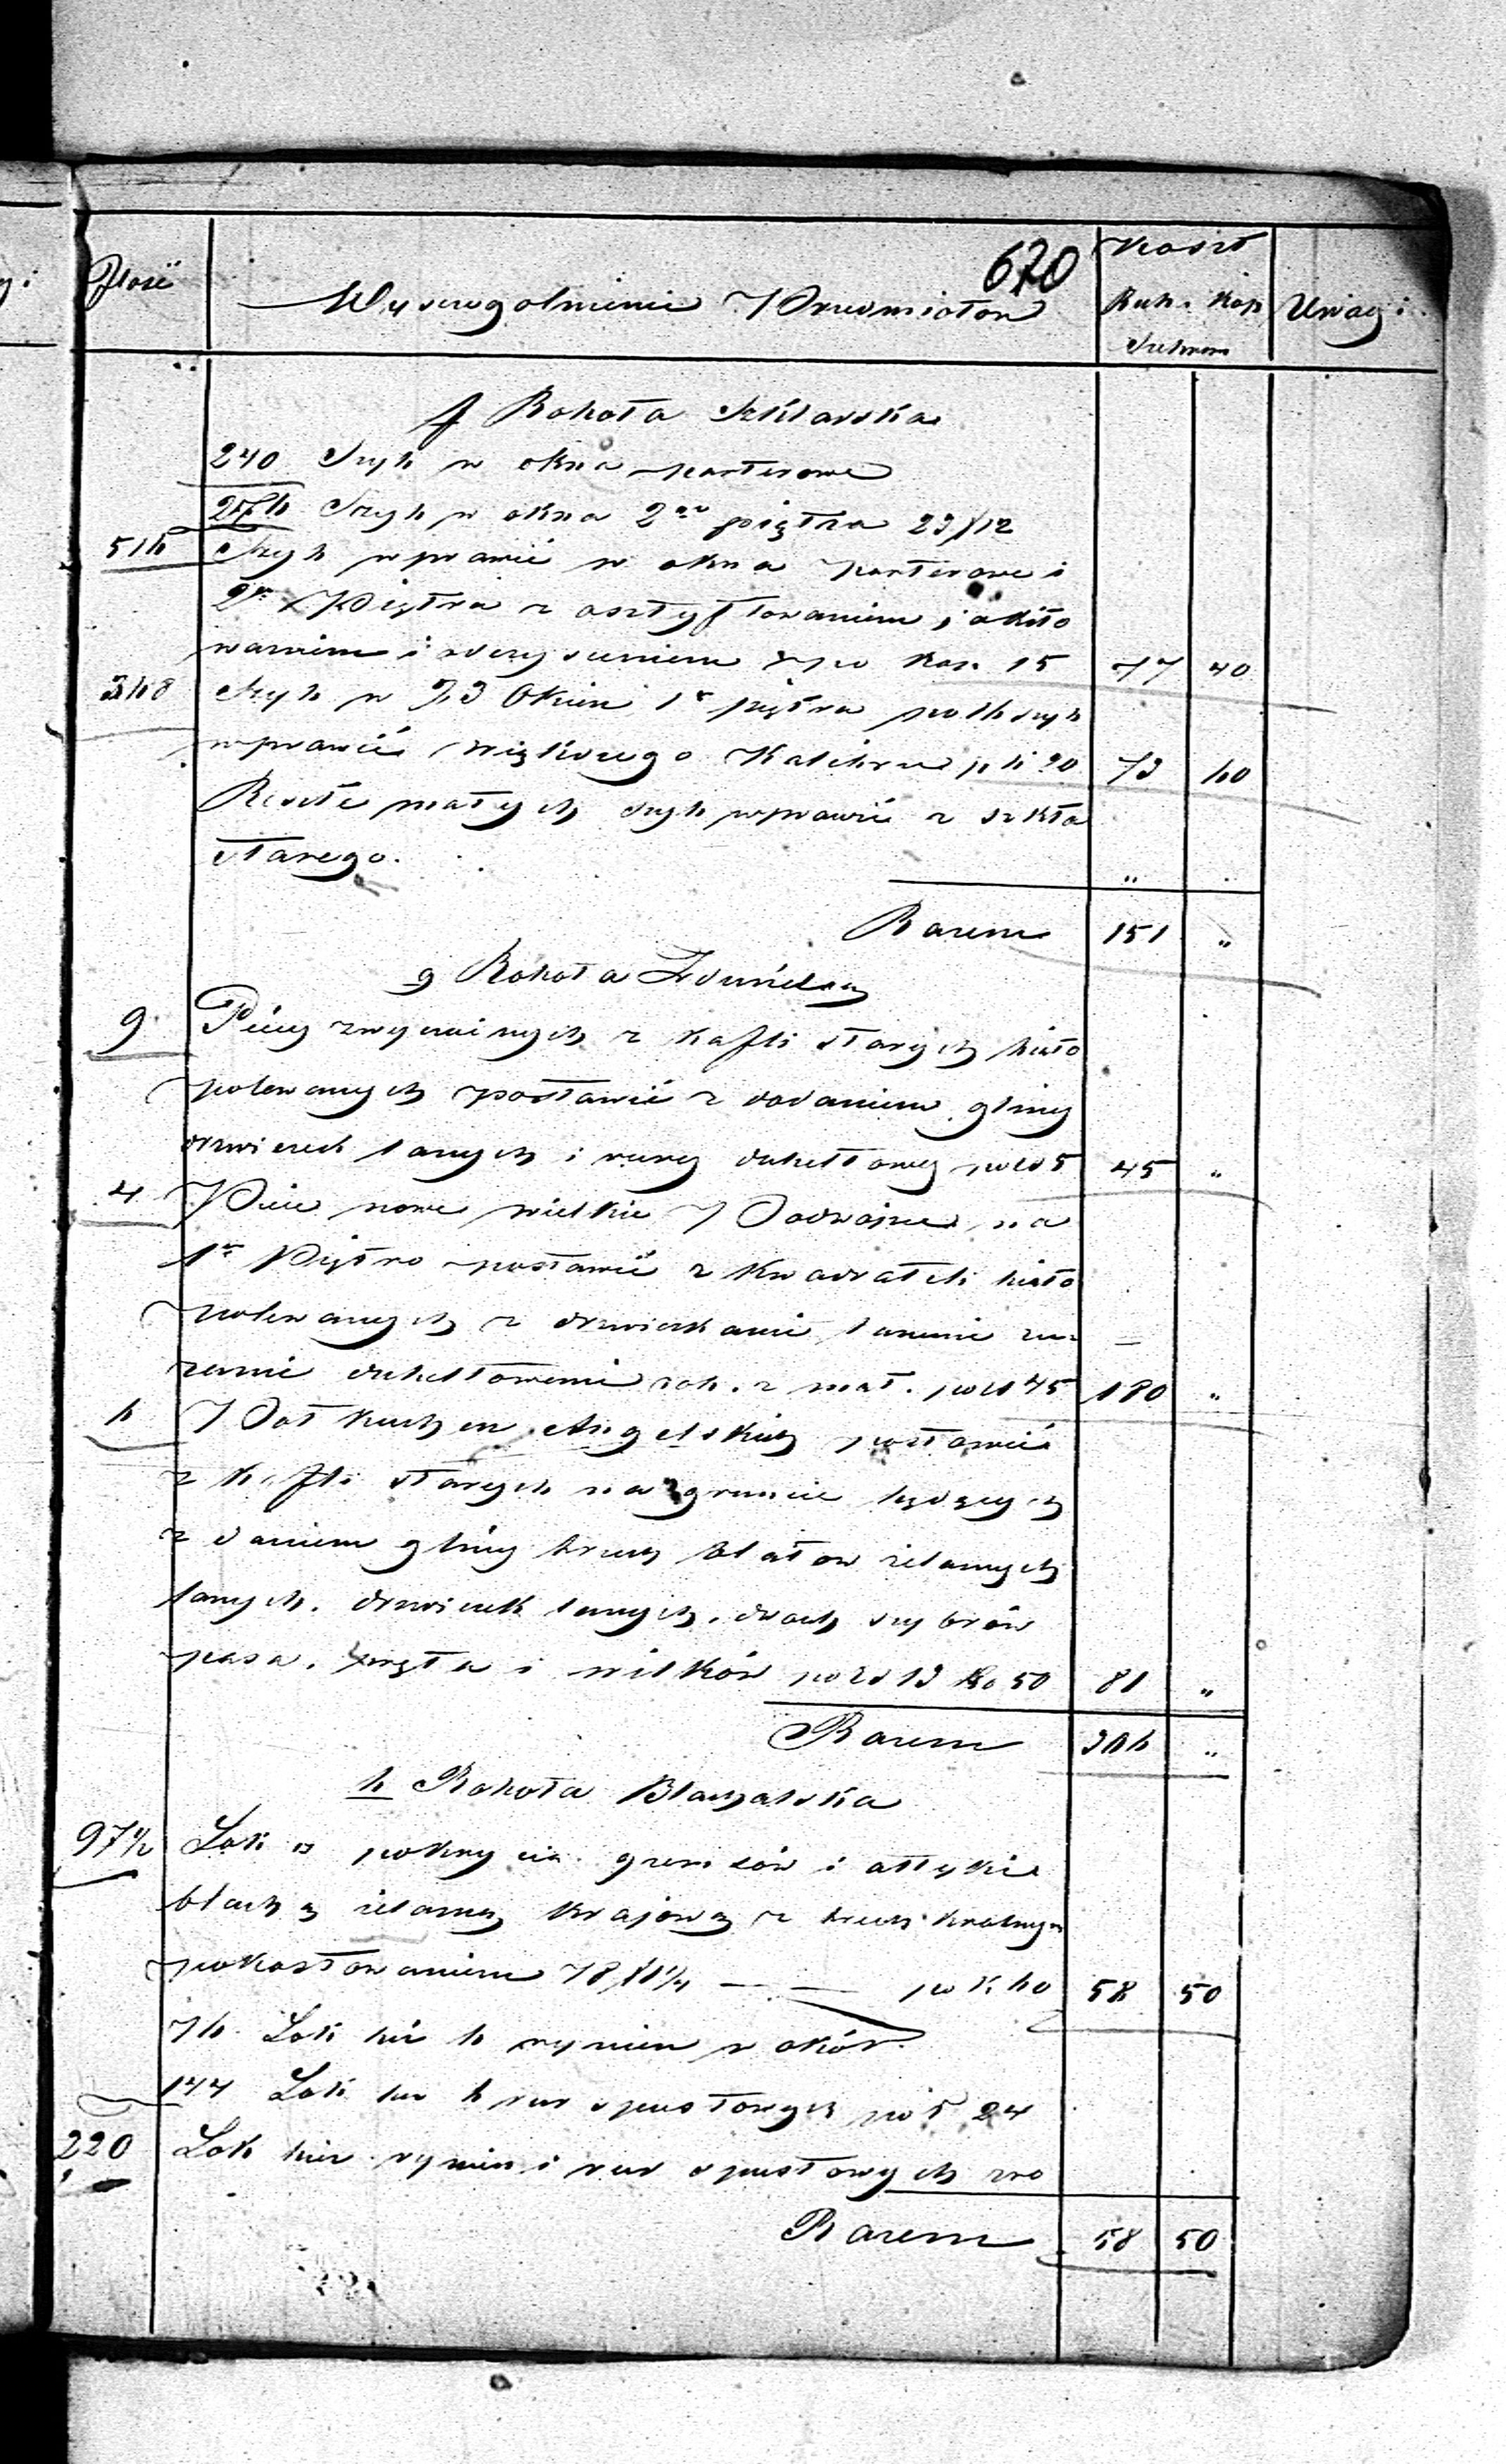 670
Ilość Wyszczegolnienie Przedmiotow Koszt
Rub. Kop Uwagi
Srebrem
f Robota Szklarska
240 Szyb w okna parterowe
276 Szyb w okna 2go piętra 23/12
516 Szyb wprawić w okna parterowe i
2go Piętra z osztyftowaniem, okito
waniem i oczyszczeniem po kop. 15 77 40
368 Szyb w 23 Oknien 1o piętra szyb
wprawić większego Kalibru p k 20 73 60
Reszte małych szyb wprawić z szkła
starego. " .
Razem 151 "
g Robota Zduńska
9 Piecy zwyczainych z kafli starych biało
polewanych postawić z dodaniem gliny
drzwiczek lanych i rury dubeltowey po rs 5 45 "
4 Piece nowe wielkie Podwójne na
1m Piętro postawić z Kwadrateli biało
polewanych z drzwiczkami lanemi ru=
rami dubeltowemi rob. z mat. po rs 45 180 "
6 Pat kuchen Angelskich postawić
z kafli starych na gruncie będących
z daniem gliny trzech blatow żelaznych
lanych. drzwiczek lanych. dwóch szybrów
pasa. pręta i wilków po rs 13 ko 50 81 "
Razem 306 "
h Robota Blacharska
97½ Łok □ pokrycia gzemsów i attykie
blachą żelazną krajową z trzech kratnym
pokostowaniem 78/1¼ — — po k 60 58 50
76 Łok bie 6 rynien w okół
144 Łok bie 6 rur spustowych po ł 24
220 Łok bie rynien i rur spustowych zro
Razem 58 50